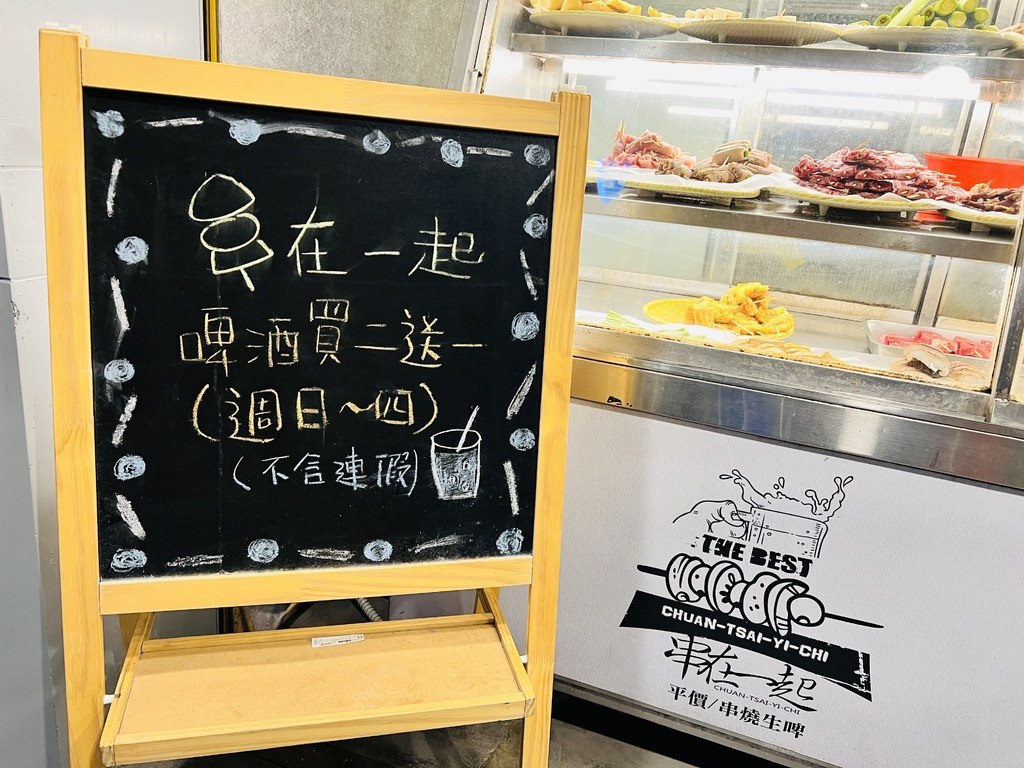 串在一起
啤酒買二送一
(週日~四)
(不含連假)
THE BEST
CHUAN-TSAI-YI-CHI
串在一起
CHUAN-TSAI-YI-CHI
平價/串燒生啤